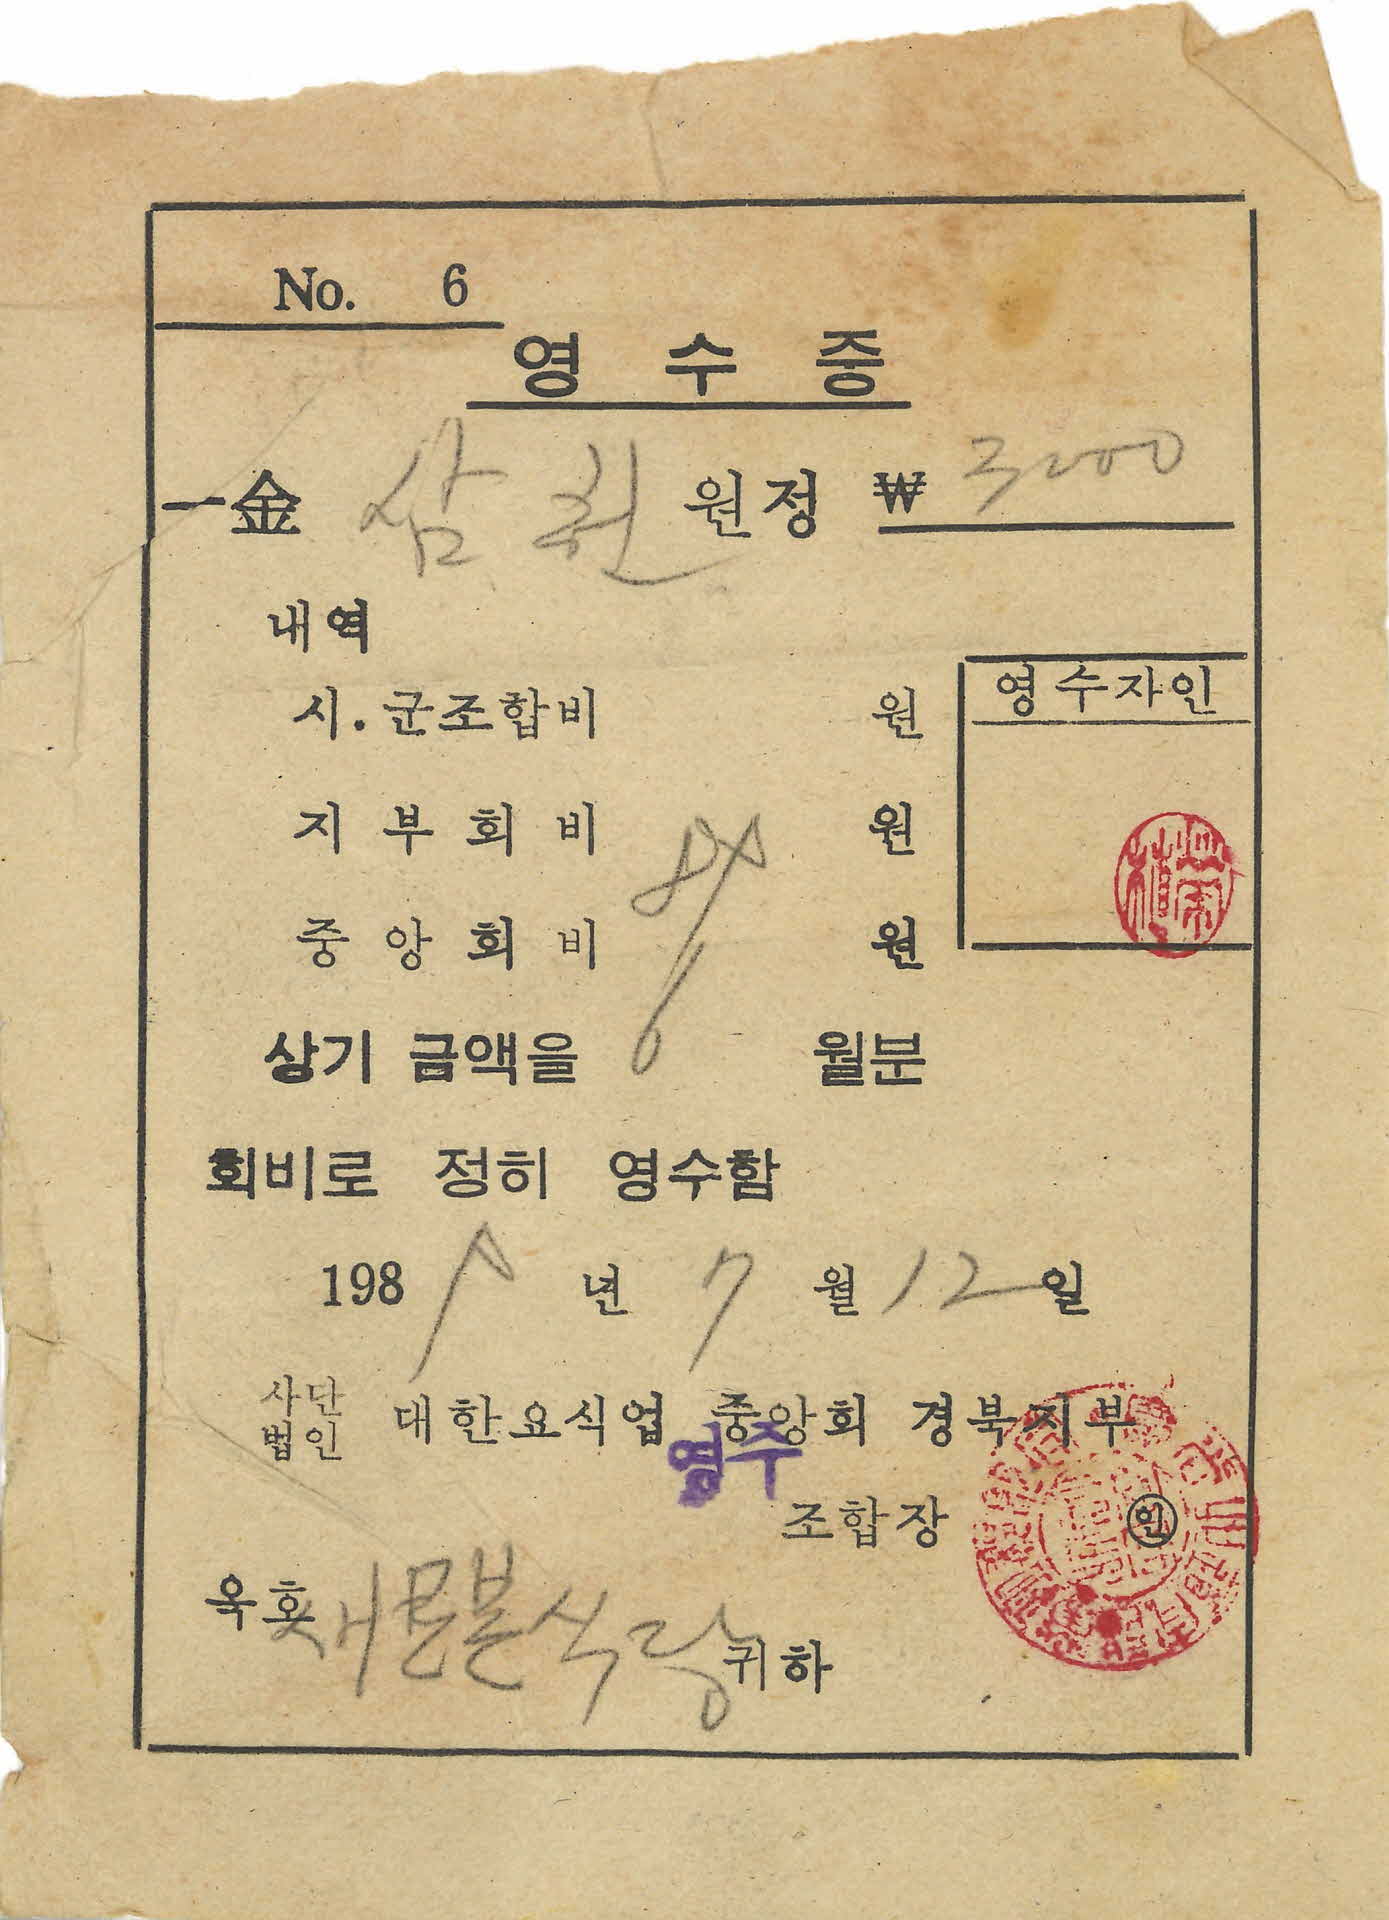 No. 6
영수증
一金 삼천 원정 ₩ 3000
내역
시.군조합비 원
영수자인
지부회비 원
중앙회비 원
상기 금액을 6 월분
회비로 정히 영수함
198 년 7 월 12 일
사단법인 대한요식업 중앙회 경북지부
영주
조합장 인
옥호 식당 귀하